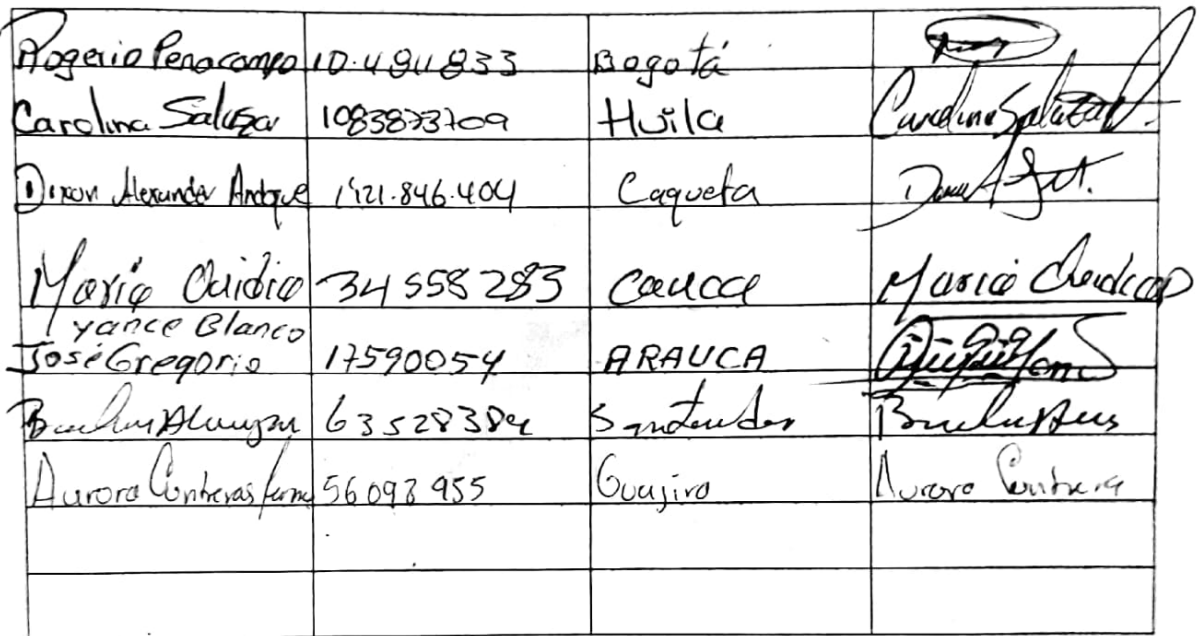 Rogerio Penacampo 10.484833 Bogotá
Carolina Salazar 1083873709 Huila Carolina Salazar
Dixon Alexander Andoque 1'121.846.404 Caqueta
Maria 34558283 Cauca Maria
Yance Blanco
José Gregorio 17590054 ARAUCA
63528384 Santander
Aurora Contreras 56098955 Guajira Aurora Contrera